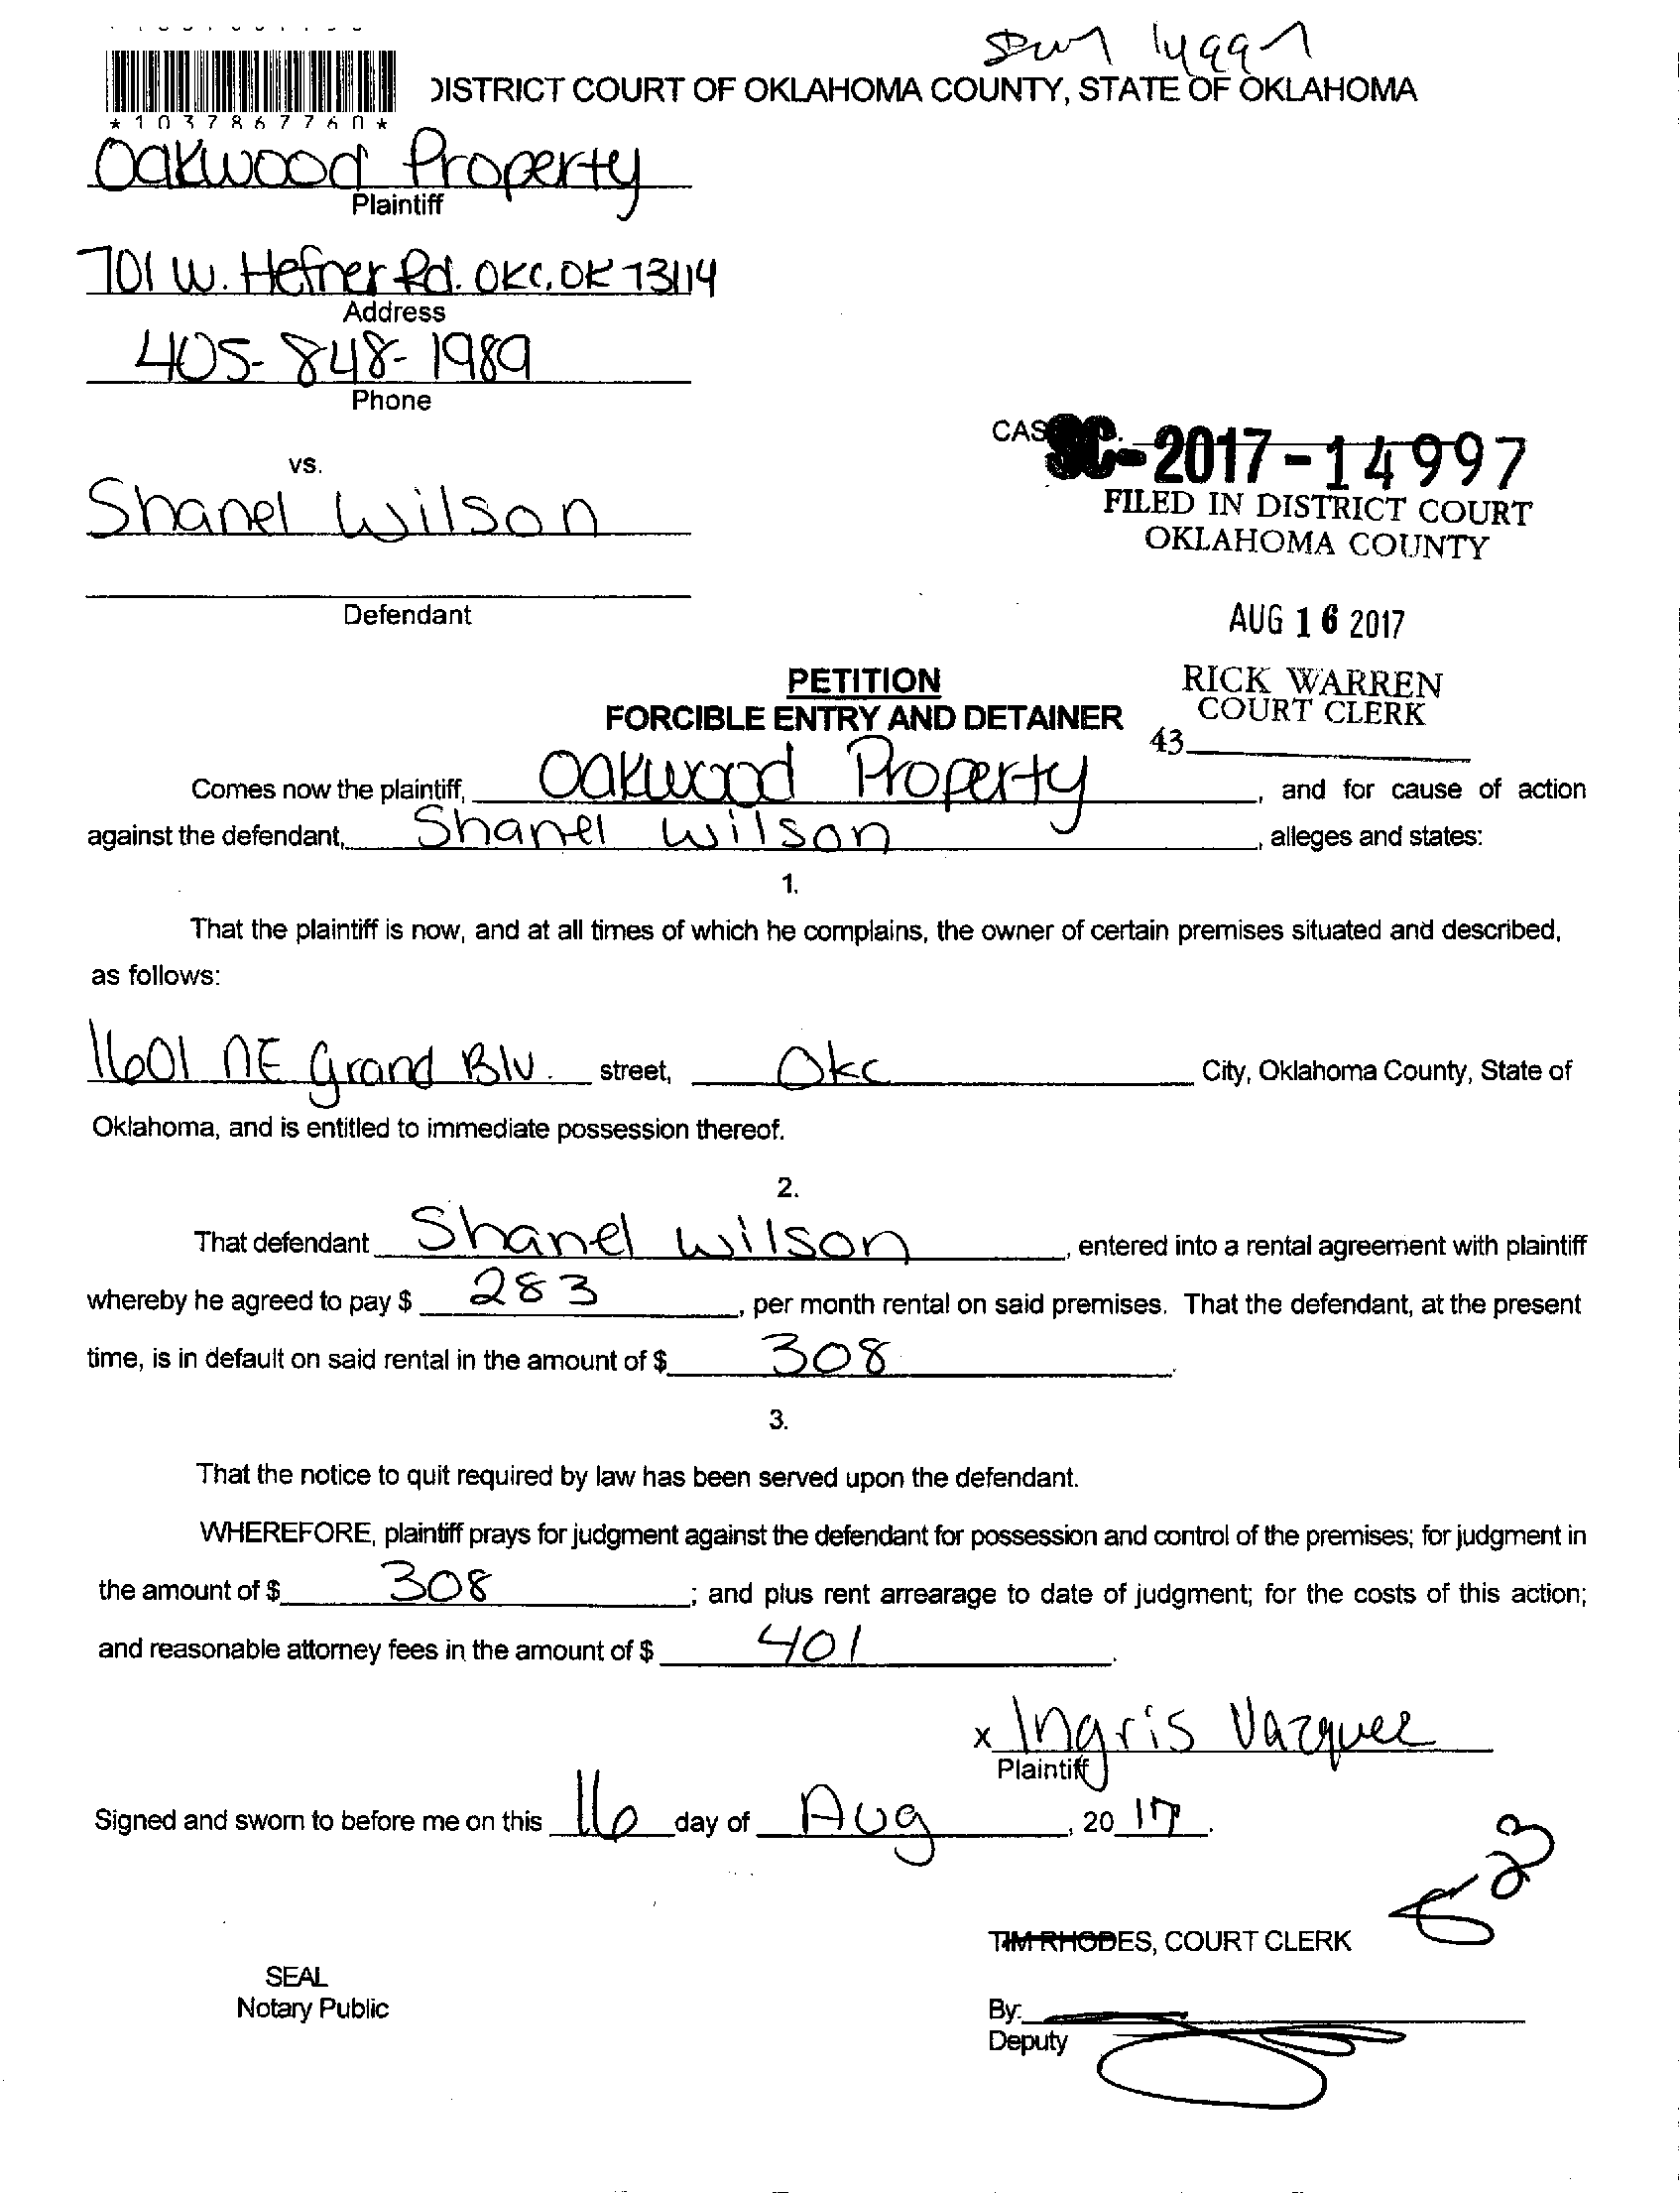 DISTRICT COURT OF OKLAHOMA COUNTY, STATE OF OKLAHOMA
*1037867760*
Oakwood Property
Plaintiff
701 W. Hefner Rd. OKC, OK 73114
Address
405-848-1989
Phone
vs.
CAS
SC-2017-14997
FILED IN DISTRICT COURT
OKLAHOMA COUNTY
Shanel Wilson
Defendant
AUG 16 2017
RICK WARREN
COURT CLERK
43
PETITION
FORCIBLE ENTRY AND DETAINER
Comes now the plaintiff, Oakwood Property, and for cause of action
against the defendant, Shanel Wilson, alleges and states:
1.
That the plaintiff is now, and at all times of which he complains, the owner of certain premises situated and described,
as follows:
1601 NE Grand Blv. street, Okc City, Oklahoma County, State of
Oklahoma, and is entitled to immediate possession thereof.
2.
That defendant Shanel Wilson, entered into a rental agreement with plaintiff
whereby he agreed to pay $ 283, per month rental on said premises. That the defendant, at the present
time, is in default on said rental in the amount of $ 308.
3.
That the notice to quit required by law has been served upon the defendant.
WHEREFORE, plaintiff prays for judgment against the defendant for possession and control of the premises; for judgment in
the amount of $ 308; and plus rent arrearage to date of judgment; for the costs of this action;
and reasonable attorney fees in the amount of $ 401.
x Ingris Vazquez
Plaintiff
Signed and sworn to before me on this 16 day of Aug, 20 17.
TIM RHODES, COURT CLERK
SEAL
Notary Public
By:
Deputy